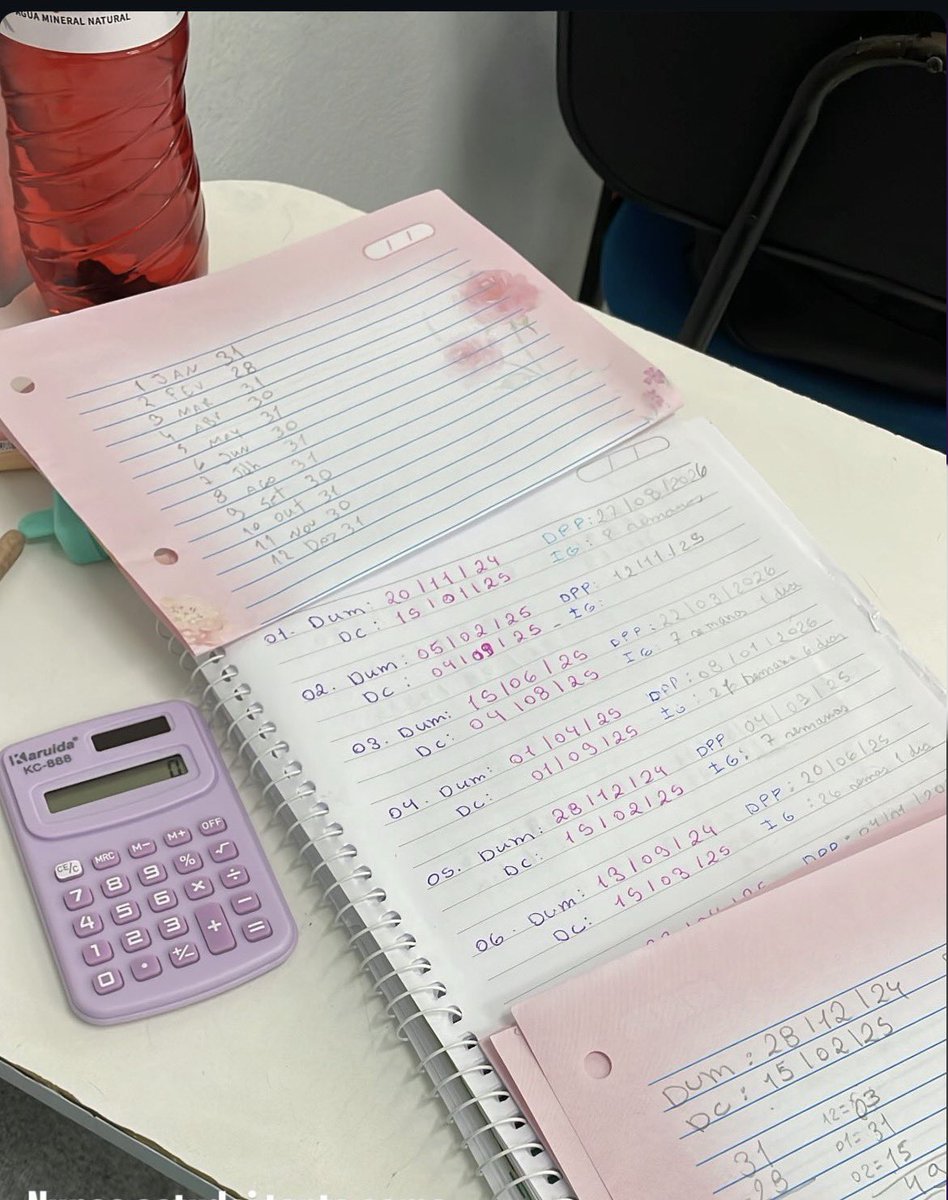 AGUA MINERAL NATURAL
1 JAN 31
2 FEV 28
3 MAR 31
4 ABR 30
5 MAY 31
6 Jun 30
7 Julh 31
8 AGO 31
9 Set 30
10 Out 31
11 Nov 30
12 Dez 31
01. Dum: 20/11/24 DPP: 27/08/2026
DC: 15/01/25 IG: 8 semanas
02. Dum: 05/02/25 DPP: 12/11/25
DC: 04/09/25 - IG:
03. Dum: 15/06/25 DPP: 22/03/2026
DC: 04/08/25 IG: 7 semanas 1 dia
04. Dum: 01/04/25 DPP: 09/01/2026
DC: 01/09/25 IG: 21 semanas 6 dias
05. Dum: 28/12/24 DPP 04/03/25
DC: 15/02/25 IG: 7 semanas
06. Dum: 13/09/24 DPP: 20/06/25
DC: 15/03/25 IG: 26 semanas 1 dia
DPP:
Karuida
KC-888
CE/C MRC M- M+ OFF
7 8 9 % √
4 5 6 × ÷
1 2 3 + −
0 . +/- =
Dum: 28/12/24
DC: 15/02/25
31 12=03
28 01=31
02=15
49